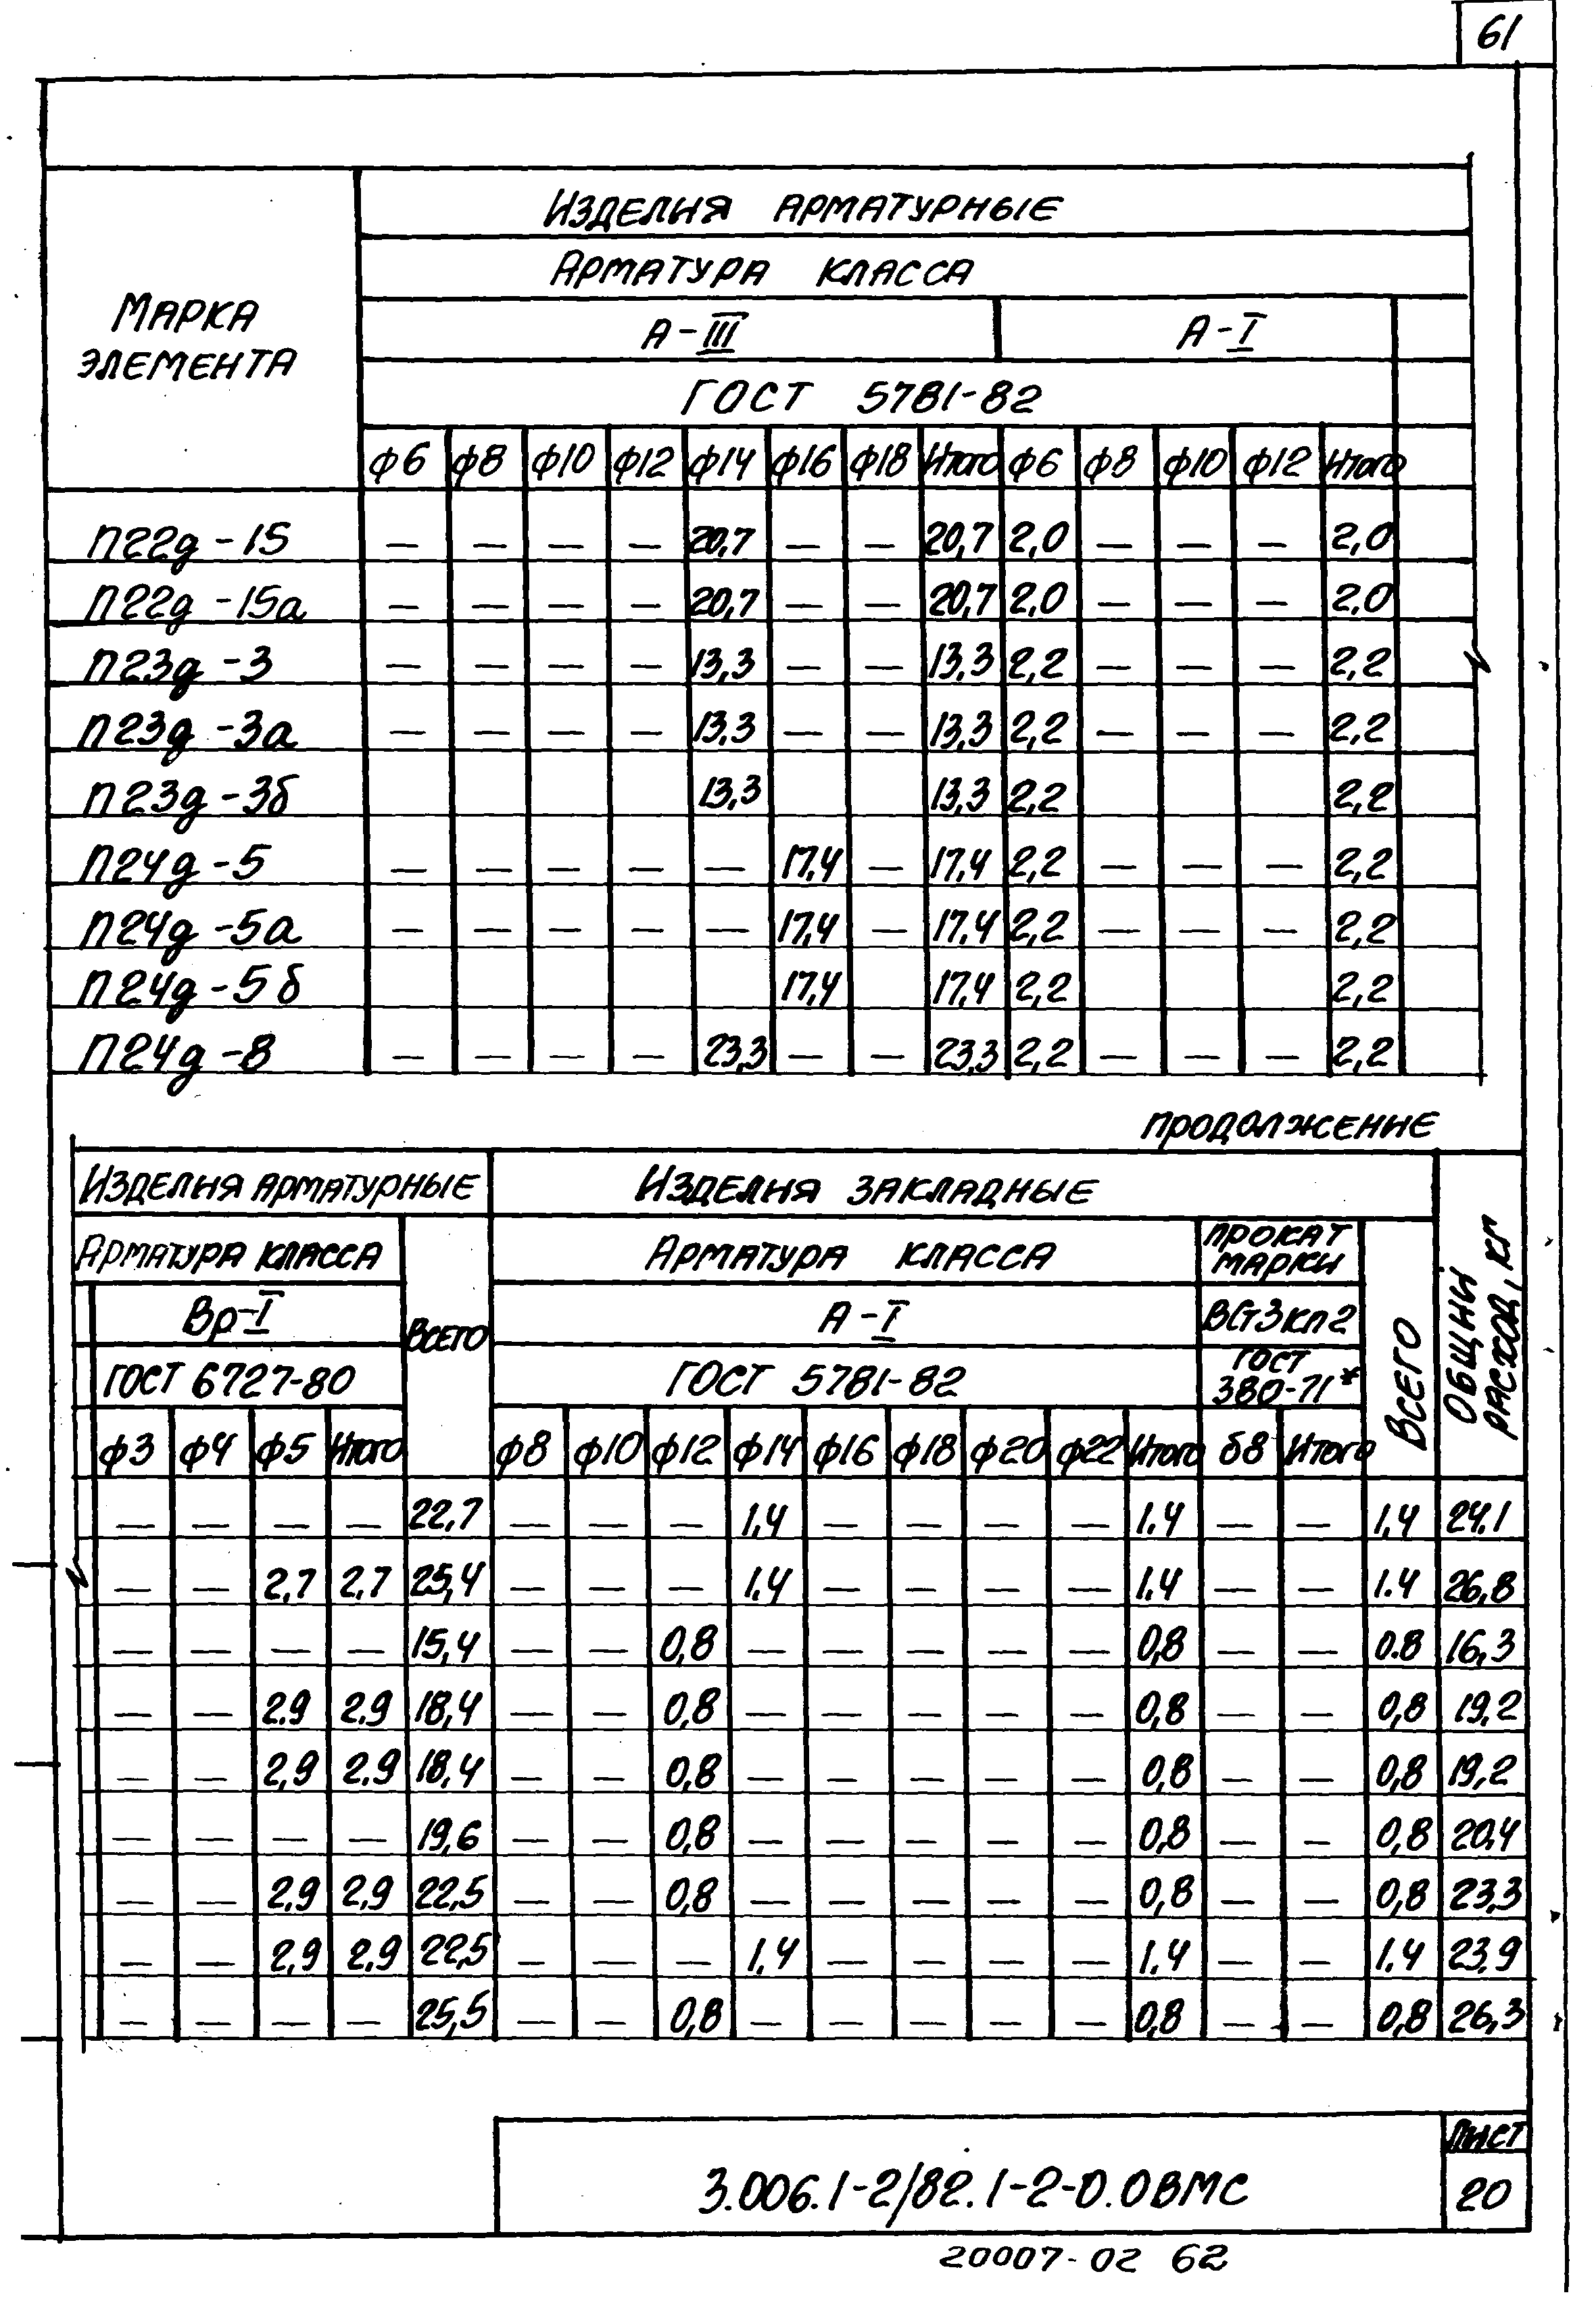 61
Изделия арматурные
Арматура класса
Марка элемента
А-III А-I
ГОСТ 5781-82
ф6 ф8 ф10 ф12 ф14 ф16 ф18 Итого ф6 ф8 ф10 ф12 Итого
П22д-15 — — — — 20,7 — — 20,7 2,0 — — — 2,0
П22д-15а — — — — 20,7 — — 20,7 2,0 — — — 2,0
П23д-3 — — — — 13,3 — — 13,3 2,2 — — — 2,2
П23д-3а — — — — 13,3 — — 13,3 2,2 — — — 2,2
П23д-3б 13,3 13,3 2,2 2,2
П24д-5 — — — — — 17,4 — 17,4 2,2 — — — 2,2
П24д-5а — — — — — 17,4 — 17,4 2,2 — — — 2,2
П24д-5б 17,4 17,4 2,2 2,2
П24д-8 — — — — 23,3 — — 23,3 2,2 — — — 2,2
продолжение
Изделия арматурные Изделия закладные Общий расход, кг
Арматура класса Всего Арматура класса Прокат марки Всего
Вр-I А-I ВСт3кп2
ГОСТ 6727-80 ГОСТ 5781-82 ГОСТ 380-71*
ф3 ф4 ф5 Итого ф8 ф10 ф12 ф14 ф16 ф18 ф20 ф22 Итого б8 Итого
— — — — 22,7 — — — 1,4 — — — — 1.4 — — 1,4 24.1
— — 2,7 2,7 25,4 — — — 1.4 — — — — 1.4 — — 1.4 26,8
— — — — 15,4 — — 0,8 — — — — — 0,8 — — 0.8 16,3
— — 2.9 2.9 18,4 — — 0,8 — — — — — 0,8 — — 0,8 19,2
— — 2,9 2.9 18,4 — — 0,8 — — — — — 0,8 — — 0,8 19,2
— — — — 19,6 — — 0,8 — — — — — 0,8 — — 0,8 20,4
— — 2,9 2,9 22,5 — — 0,8 — — — — — 0,8 — — 0,8 23,3
— — 2,9 2.9 22,5 — — — 1.4 — — — — 1.4 — — 1.4 23,9
— — — — 25,5 — — 0,8 — — — — — 0,8 — — 0,8 26,3
3.006.1-2/82.1-2-0.0ВМС
Лист
20
20007-02 62